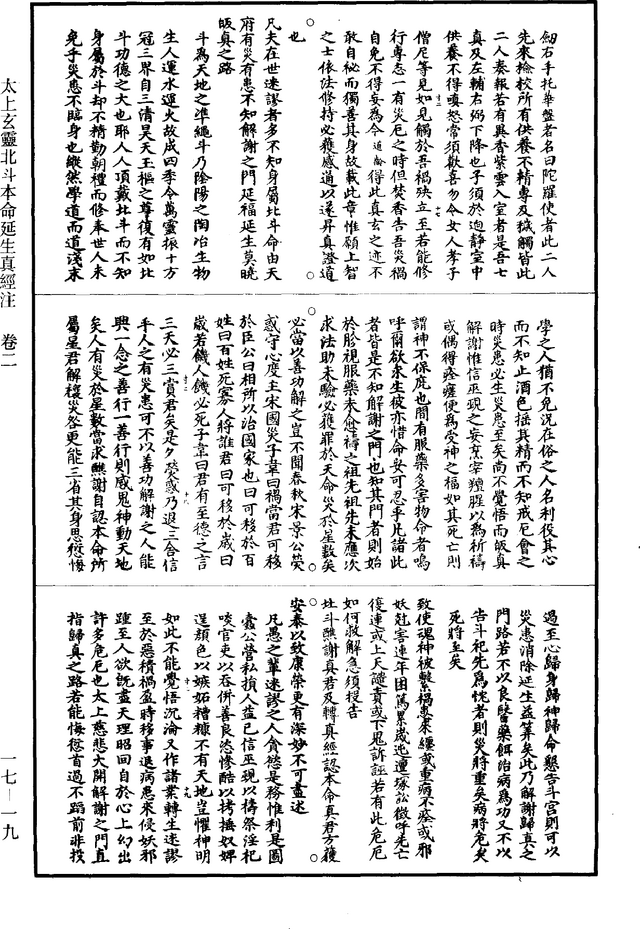 太上玄靈北斗本命延生真經注　卷二
一七—一九
細右手托華盤者名曰陀羅使者此二人
先來檢校所有供養不精專及穢觸皆此
二人奏報若有異香紫雲入室者是吾七
真及左輔右弼下降也子須於迥靜室中
供養不得嗔怒常須歡喜勿令女人孝子
僧尼等見如見觸於吾禍殃立至若能修
行專志一有災厄之時但焚香告吾災禍
自免不得妄為今道齡得此真玄之迹不
敢自秘而獨善其身故載此章惟願上智
之士依法修持必獲感通以遂昇真證道
也
凡夫在世迷謬者多不知身屬北斗命由天
府有災有患不知解謝之門延福延生莫曉
皈真之路
斗為天地之準繩斗乃陰陽之陶冶生物
生人運水運火故成四季令萬靈振十方
冠三界自三清昊天玉樞之尊復有如北
斗功德之大也耶人人頂戴北斗而不知
身屬於斗却不精勤朝禮而修奉世人未
免乎災患不臨身也縱然學道而道淺末
學之人猶不免況在俗之人名利役其心
而不知止酒色搖其精而不知戒厄會之
時災患必生災患至矣尚不覺悟而皈真
解謝惟信巫覡之妄烹宰羶腥以為祈禱
或偶得痊瘥便為受神之福如其死亡則
謂神不保庇也間有服藥多害物命者嗚
呼爾欲求生彼亦惜命安可忍乎凡諸此
者皆是不知解謝之門也知其門者則始
於胗視服藥未愈禱之祖先祖先未應次
求法助未驗必獲罪於天命災於星數矣
必當以善功解之豈不聞春秋宋景公熒
惑守心度主宋國災子韋曰禍當君可移
於臣公曰相所以治國家也曰可移於百
姓曰百姓死寡人將誰君曰可移於歲曰
歲若饑人饑必死子韋曰君有至德之言
三天必三賞君矣是夕熒惑乃退三舍信
乎人之有災患可不以善功解謝之人能
興一念之善行一善行則感鬼神動天地
矣人有災於星數當求醮謝自認本命所
屬星君解禳災咎更能三省其身思愆悔
過至心歸身歸神歸命懇告斗宮則可以
災患消除延生益筭矣此乃解謝歸真之
門路若不以良醫藥餌治病為功又不以
告斗祀先為忱者則災將重矣病將危矣
死將至矣
致使魂神被繫禍患來纏或重病不瘥或邪
妖尅害連年困篤累歲迍邅塚訟徵呼先亡
復連或上天譴責或下鬼訴誣若有此危厄
如何救解急須投告
北斗醮謝真君及轉真經認本命真君方獲
安泰以致康榮更有深妙不可盡述
凡愚之輩迷謬之人貪慾是務惟利是圖
蠹公營私損人益己信巫覡以禱祭淫祀
啖官吏以吞併善良恣慘酷以拷捶奴婢
逞顏色以嫉妬糟糠不有天地豈懼神明
如此不能覺悟沉淪又作諸業轉生迷謬
至於惡積禍盈時移事退病患來侵妖邪
踵至人欲既盡天理昭回自於心上幻出
許多危厄也太上慈悲大開解謝之門直
指歸真之路若能悔愆首過不蹈前非投